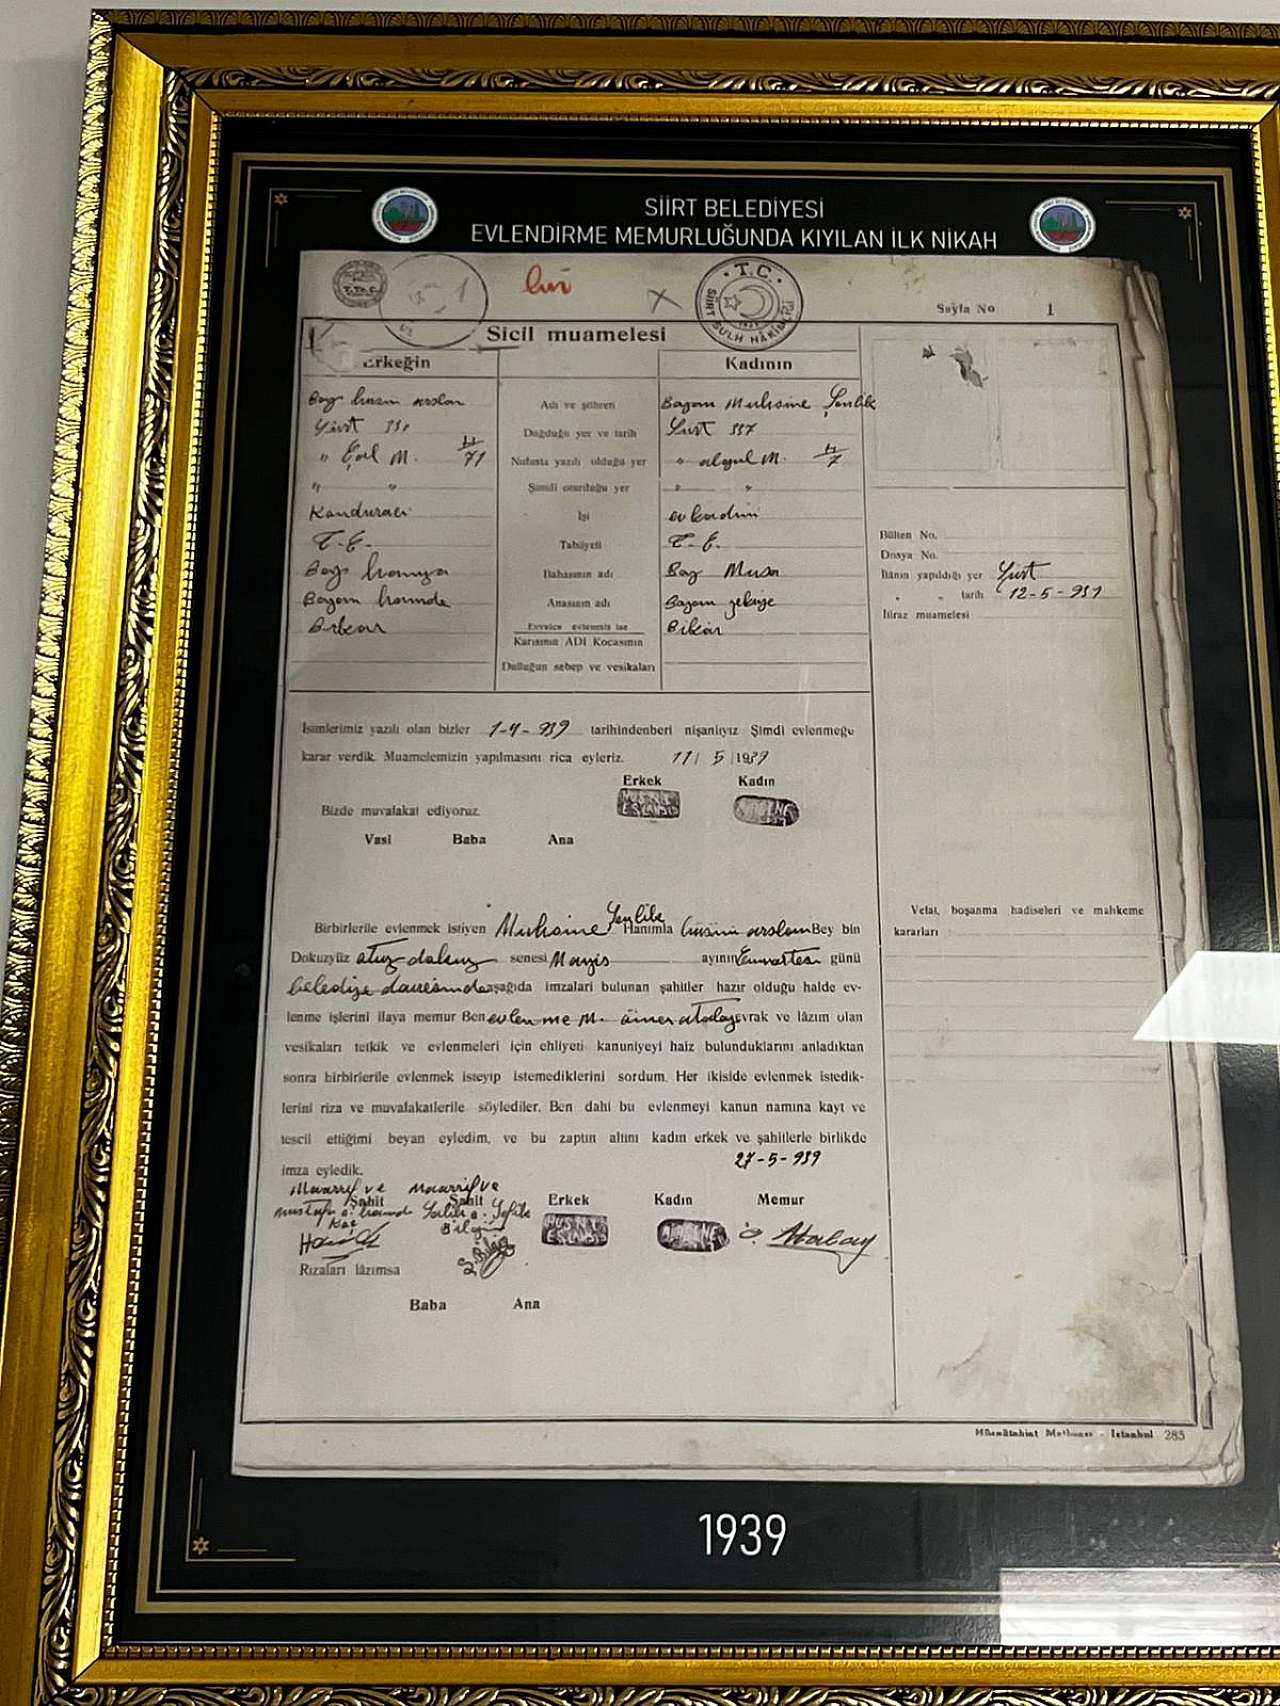 SİİRT BELEDİYESİ
EVLENDİRME MEMURLUĞUNDA KIYILAN İLK NİKAH
T.C.
SİİRT SULH HÂKİMLİĞİ
Sayfa No 1
Sicil muamelesi
Erkeğin
Kadının
Bay arslan
Adı ve şöhreti
Bayan Muhsine Şenlik
Doğduğu yer ve tarih
337
" M. 71
Nüfusta yazılı olduğu yer
" M. 7
" "
Şimdi oturduğu yer
" "
Konduracı
İşi
ev kadını
T. C.
Tabiiyeti
T. C.
Bay hamza
Babasının adı
Bay Musa
Bayan hamde
Anasının adı
Bayan zekiye
Bikâr
Evvelce evlenmiş ise
Bikâr
Karısının ADI Kocasının
Dulluğun sebep ve vesikaları
Bülten No.
Dosya No.
İlânın yapıldığı yer Siirt
" " tarih 12-5-939
İtiraz muamelesi
İsimlerimiz yazılı olan bizler 1-4-939 tarihindenberi nişanlıyız Şimdi evlenmeğe
karar verdik. Muamelemizin yapılmasını rica eyleriz. 11/5/1939
Erkek Kadın
Bizde muvafakat ediyoruz.
Vasi Baba Ana
Velat, boşanma hadiseleri ve mahkeme
kararları
Birbirlerile evlenmek istiyen Muhsine Şenlik Hanımla hüsnü arslan Bey bin
Dokuzyüz otuz dokuz senesi Mayıs ayının Cumartesi günü
belediye dairesinde aşağıda imzaları bulunan şahitler hazır olduğu halde ev-
lenme işlerini ifaya memur Ben evlenme M. ömer atalay evrak ve lâzım olan
vesikaları tetkik ve evlenmeleri için ehliyeti kanuniyeyi haiz bulunduklarını anladıktan
sonra birbirlerile evlenmek isteyip istemediklerini sordum. Her ikiside evlenmek istedik-
lerini riza ve muvafakatlerile söylediler. Ben dahi bu evlenmeyi kanun namına kayt ve
tescil ettiğimi beyan eyledim, ve bu zaptın altını kadın erkek ve şahitlerle birlikde
imza eyledik.
27-5-939
Şahit Şahit Erkek Kadın Memur
Ö. Atalay
Rızaları lâzımsa
Baba Ana
Hüsnütabiat Matbaası - İstanbul 285
1939